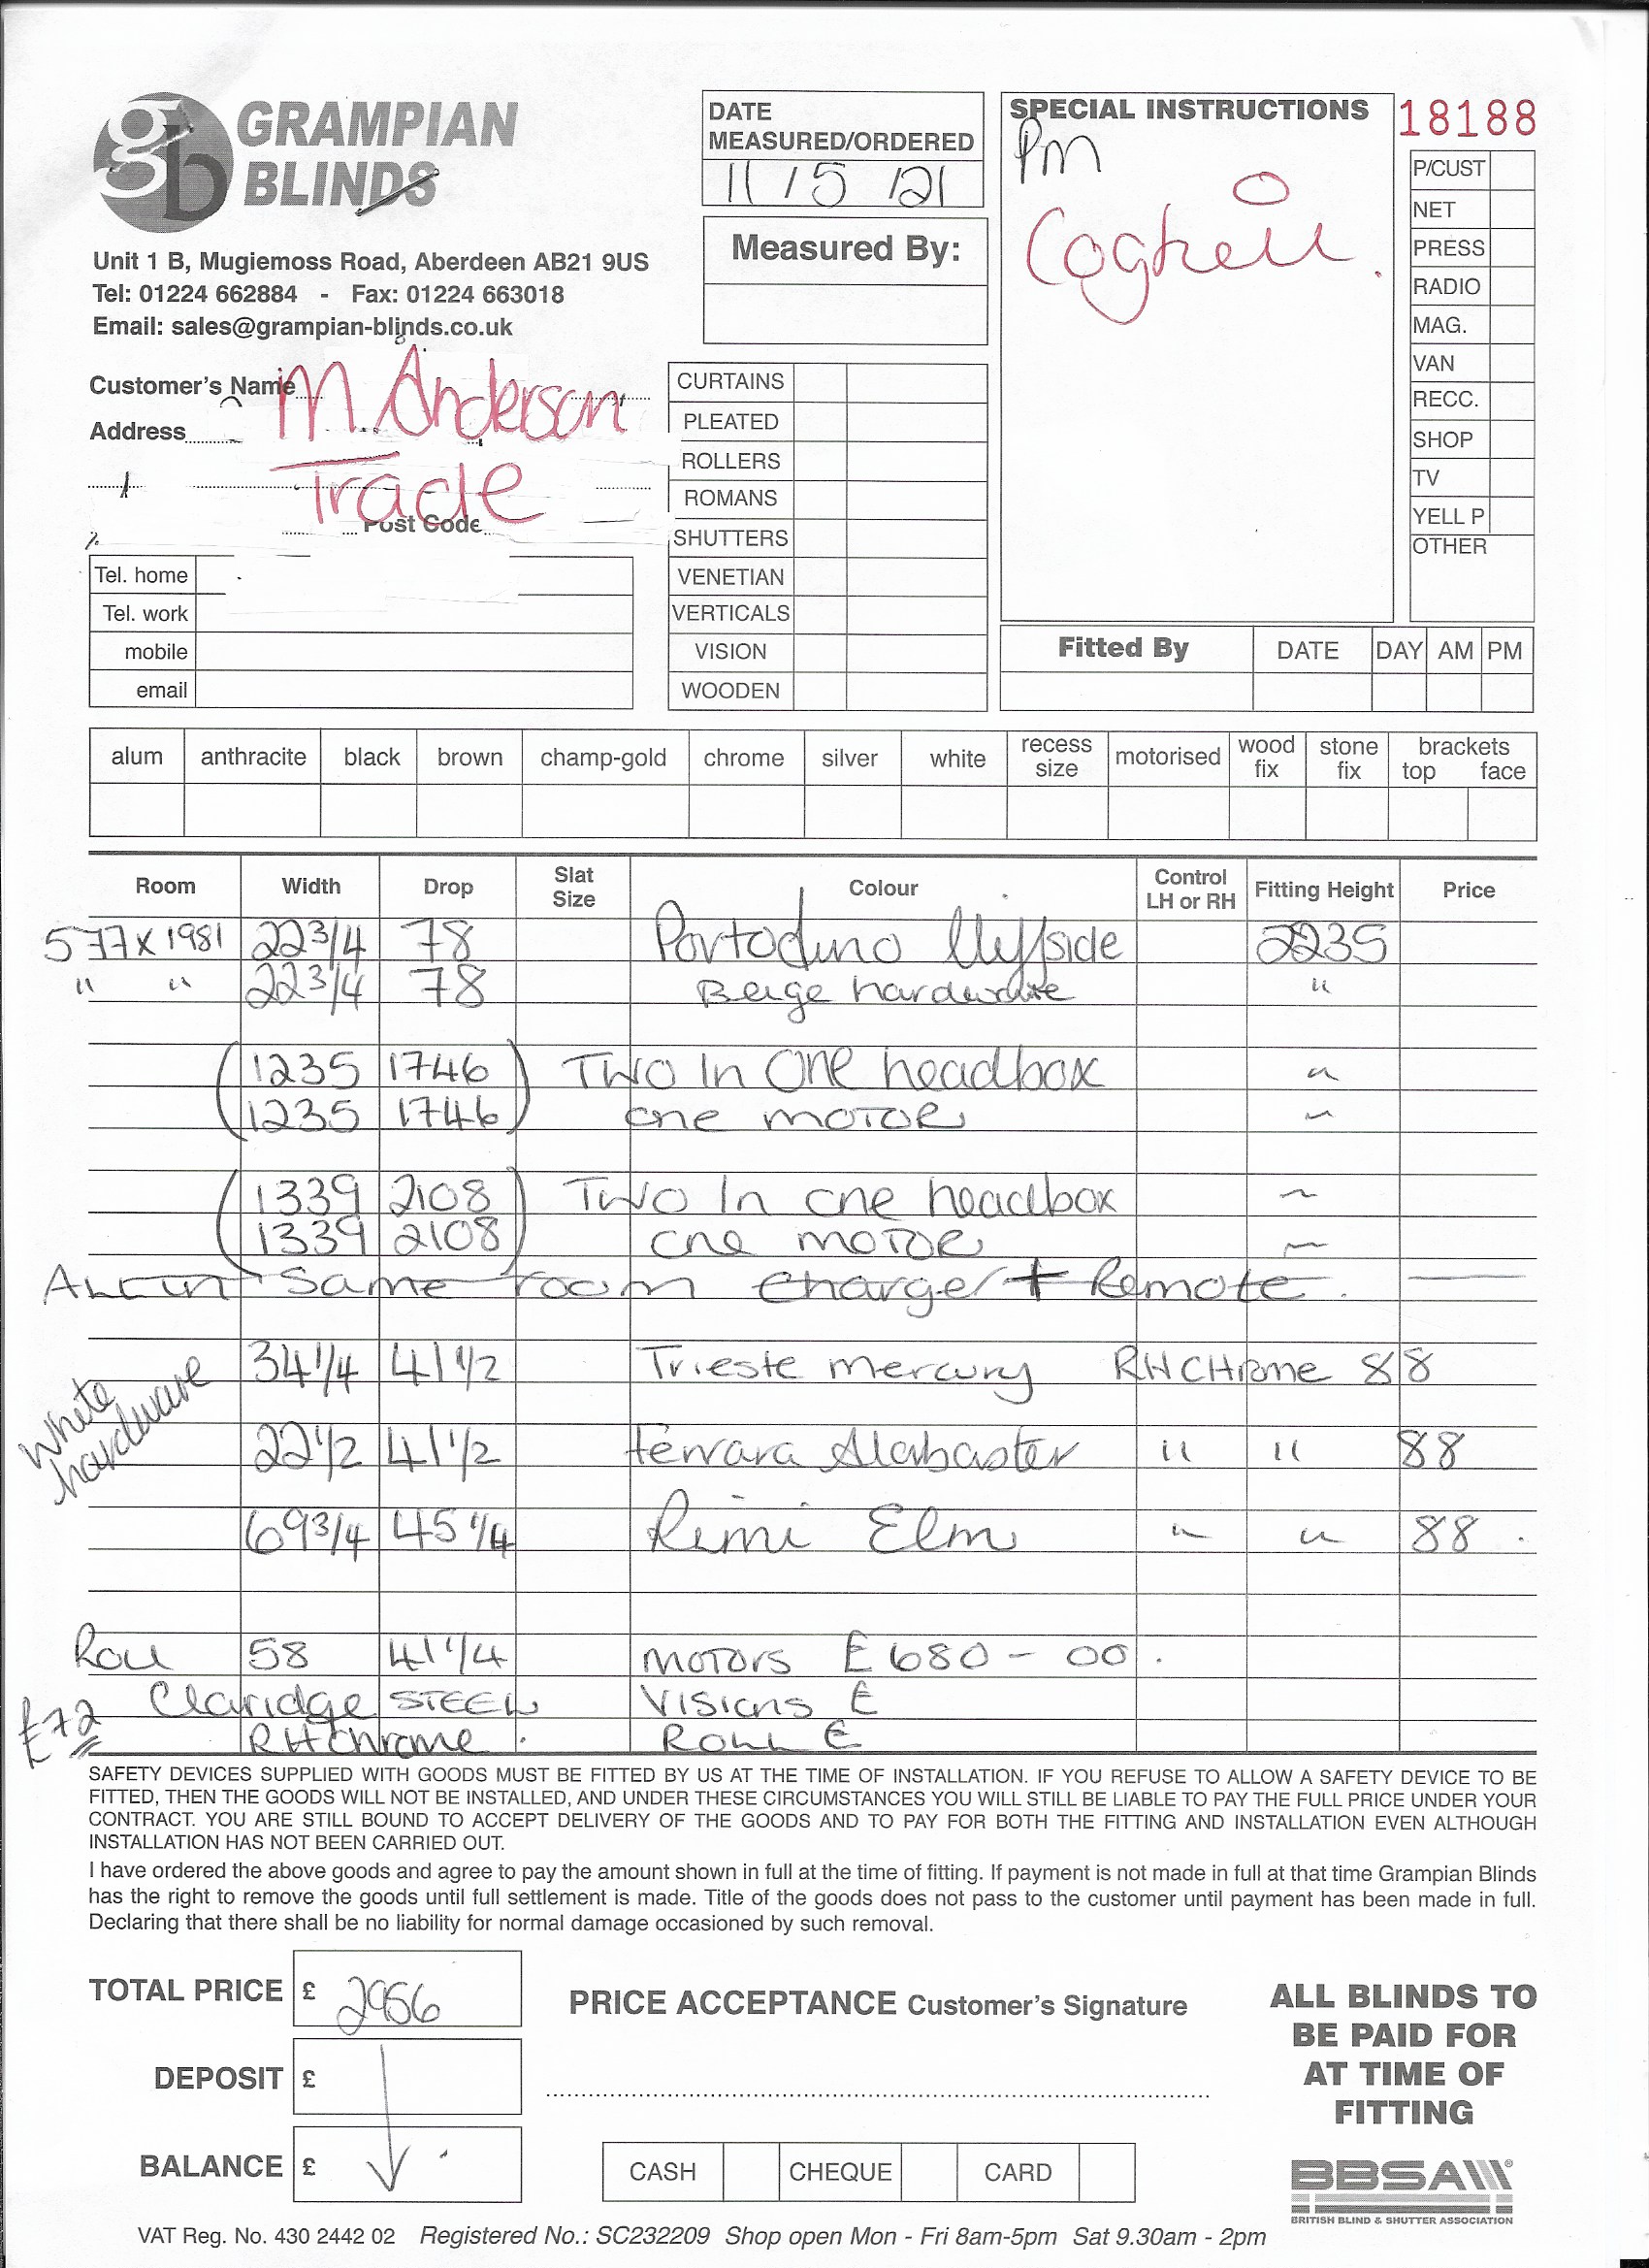 GRAMPIAN
BLINDS
gb
Unit 1 B, Mugiemoss Road, Aberdeen AB21 9US
Tel: 01224 662884 - Fax: 01224 663018
Email: sales@grampian-blinds.co.uk
DATE
MEASURED/ORDERED
11 / 5 / 21
Measured By:
SPECIAL INSTRUCTIONS
Pm
18188
P/CUST
NET
PRESS
RADIO
MAG.
VAN
RECC.
SHOP
TV
YELL P
OTHER
Customer's Name M. Anderson
Address
Trade
Post Code
Tel. home
Tel. work
mobile
email
CURTAINS
PLEATED
ROLLERS
ROMANS
SHUTTERS
VENETIAN
VERTICALS
VISION
WOODEN
Fitted By DATE DAY AM PM
alum anthracite black brown champ-gold chrome silver white recess size motorised wood fix stone fix brackets top face
Room Width Drop Slat Size Colour Control LH or RH Fitting Height Price
577 x 1981 22 3/4 78 2235
" " 22 3/4 78 Beige hardware "
1235 1746 Two In One headbox "
1235 1746 one motor
1339 2108 Two In one headbox
1339 2108 one motor
All in same room Charger + Remote.
White hardware
34 1/4 41 1/2 Trieste mercury RH CHrome 88
22 1/2 41 1/2 ferrara Alabaster " " 88
69 3/4 45 1/4 Rimi Elm " " 88
Roll 58 41 1/4 motors £680-00.
Claridge STEEL Visions £
£72 RH Chrome. Roll £
SAFETY DEVICES SUPPLIED WITH GOODS MUST BE FITTED BY US AT THE TIME OF INSTALLATION. IF YOU REFUSE TO ALLOW A SAFETY DEVICE TO BE
FITTED, THEN THE GOODS WILL NOT BE INSTALLED, AND UNDER THESE CIRCUMSTANCES YOU WILL STILL BE LIABLE TO PAY THE FULL PRICE UNDER YOUR
CONTRACT. YOU ARE STILL BOUND TO ACCEPT DELIVERY OF THE GOODS AND TO PAY FOR BOTH THE FITTING AND INSTALLATION EVEN ALTHOUGH
INSTALLATION HAS NOT BEEN CARRIED OUT.
I have ordered the above goods and agree to pay the amount shown in full at the time of fitting. If payment is not made in full at that time Grampian Blinds
has the right to remove the goods until full settlement is made. Title of the goods does not pass to the customer until payment has been made in full.
Declaring that there shall be no liability for normal damage occasioned by such removal.
TOTAL PRICE £ 2956
DEPOSIT £
BALANCE £
PRICE ACCEPTANCE Customer's Signature
CASH CHEQUE CARD
ALL BLINDS TO
BE PAID FOR
AT TIME OF
FITTING
BBSA
BRITISH BLIND & SHUTTER ASSOCIATION
VAT Reg. No. 430 2442 02 Registered No.: SC232209 Shop open Mon - Fri 8am-5pm Sat 9.30am - 2pm